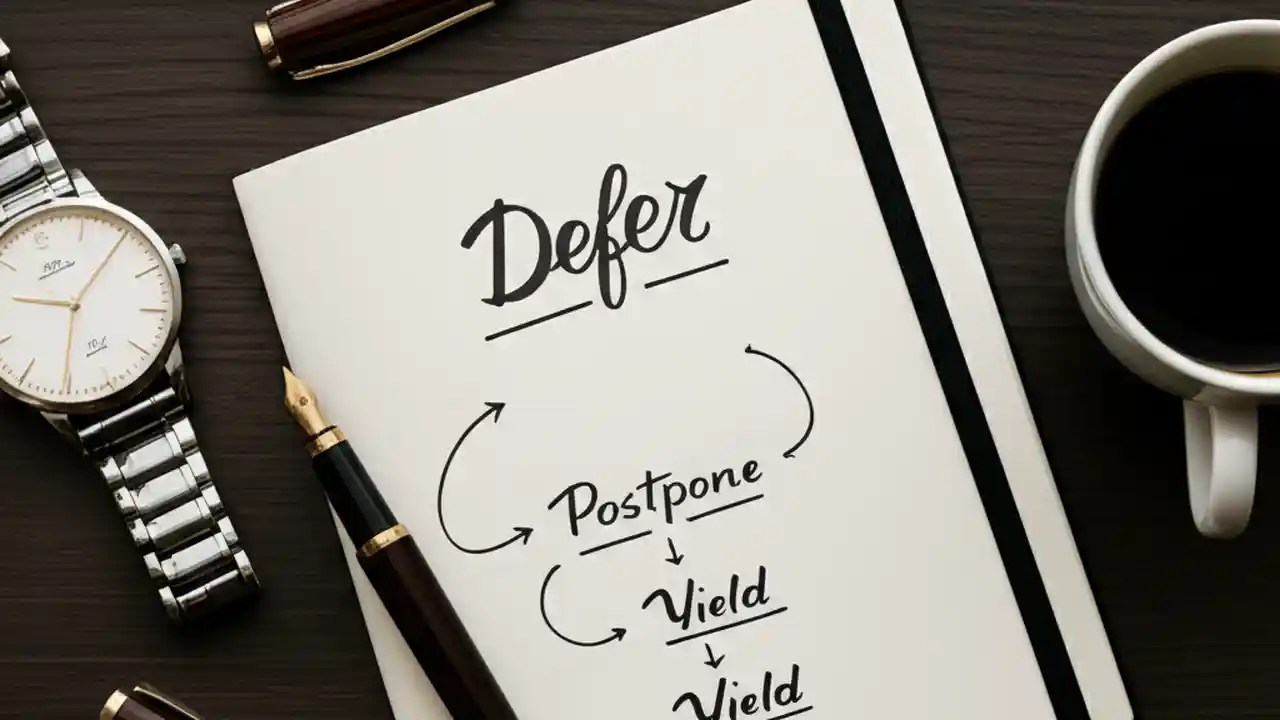 Defer
Postpone
Yield
Yield